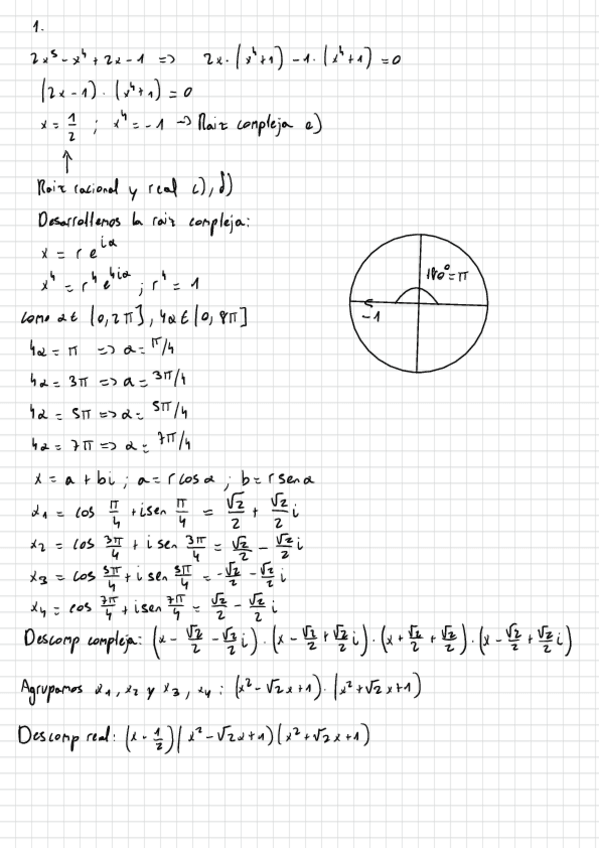 1.
2x⁵ - x⁴ + 2x - 1 => 2x · (x⁴+1) - 1 · (x⁴+1) = 0
(2x - 1) · (x⁴+1) = 0
x = 1/2 ; x⁴ = -1 → Raiz compleja e)
↑
Raiz racional y real c), d)
Desarrollemos la raiz compleja:
x = r e^{iα}
x⁴ = r⁴ e^{4iα} ; r⁴ = 1
180° = π
-1
Como α ∈ [0, 2π], 4α ∈ [0, 8π]
4α = π => α = π/4
4α = 3π => α = 3π/4
4α = 5π => α = 5π/4
4α = 7π => α = 7π/4
x = a + bi ; a = r cos α ; b = r sen α
x1 = cos π/4 + i sen π/4 = √2/2 + √2/2 i
x2 = cos 3π/4 + i sen 3π/4 = √2/2 - √2/2 i
x3 = cos 5π/4 + i sen 5π/4 = -√2/2 - √2/2 i
x4 = cos 7π/4 + i sen 7π/4 = √2/2 - √2/2 i
Descomp compleja: (x - √2/2 - √2/2 i) · (x - √2/2 + √2/2 i) · (x + √2/2 + √2/2) · (x - √2/2 + √2/2 i)
Agrupamos x1, x2 y x3, x4 : (x² - √2x + 1) · (x² + √2x + 1)
Descomp real: (x - 1/2)(x² - √2x + 1)(x² + √2x + 1)